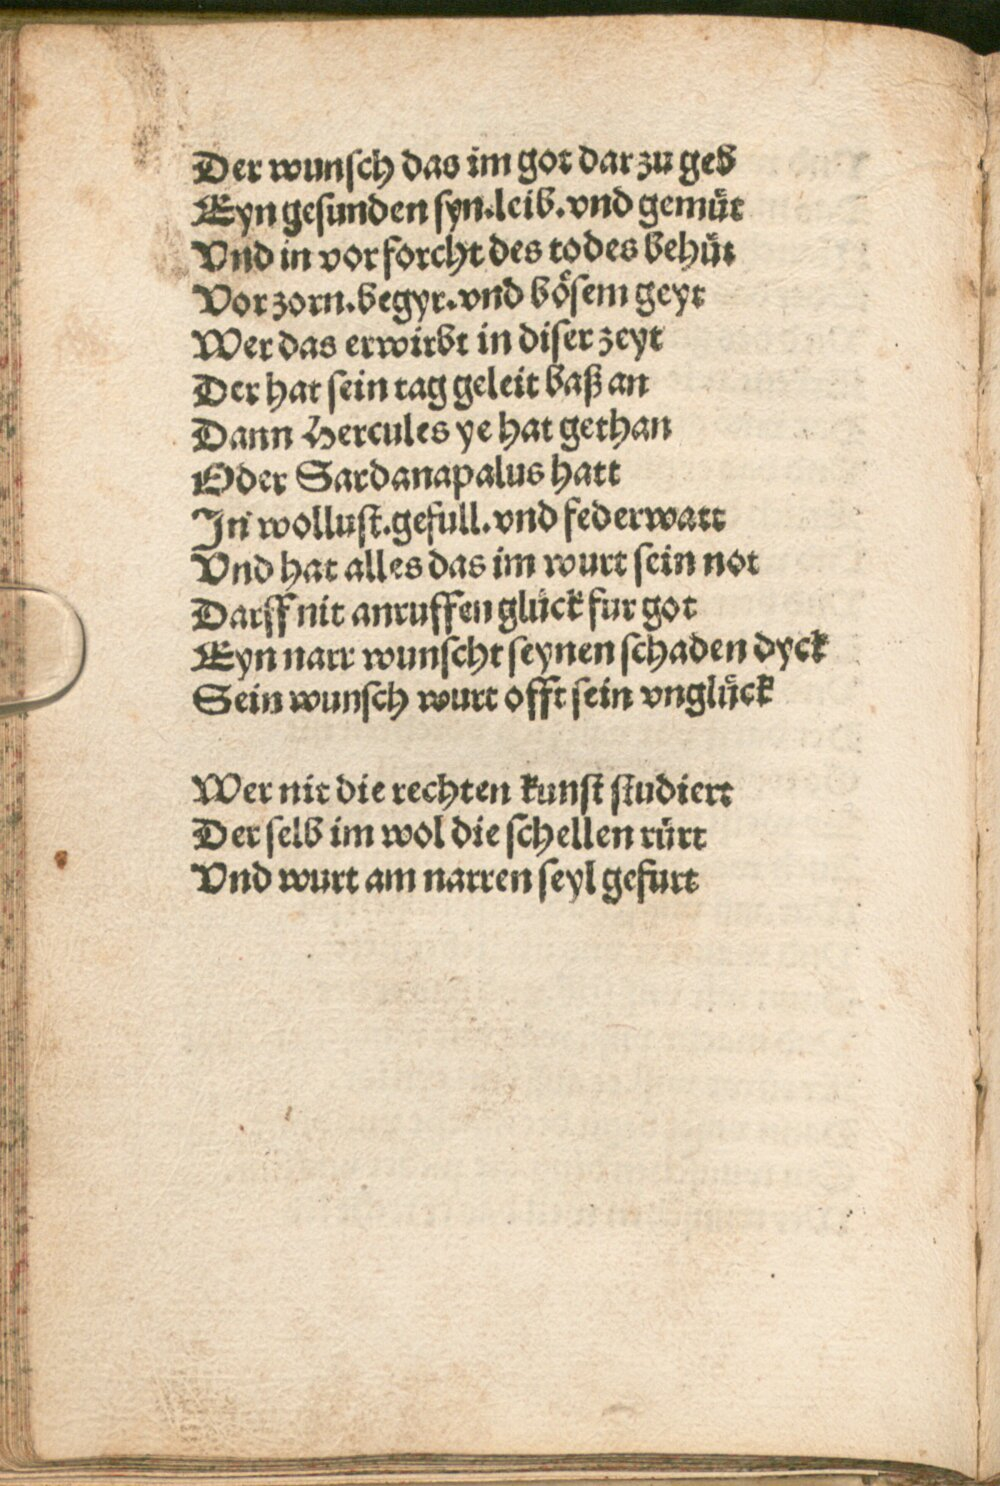 Der wunſch das im got dar zu geb
Eyn geſunden ſyn.leib.vnd gemuͤt
Vnd in vor forcht des todes behuͤt
Vor zorn.begyr.vnd boͤſem geyt
Wer das erwirbt in diſer zeyt
Der hat ſein tag geleit baß an
Dann Hercules ye hat gethan
Oder Sardanapalus hatt
In wolluſt.gefull.vnd federwatt
Vnd hat alles das im wurt ſein not
Darff nit anruffen gluͤck fur got
Eyn narr wunſcht ſeynen ſchaden dyck
Sein wunſch wurt offt ſein vngluͤck

Wer nit die rechten kunſt ſtudiert
Der ſelb im wol die ſchellen ruͤrt
Vnd wurt am narren ſeyl gefurt